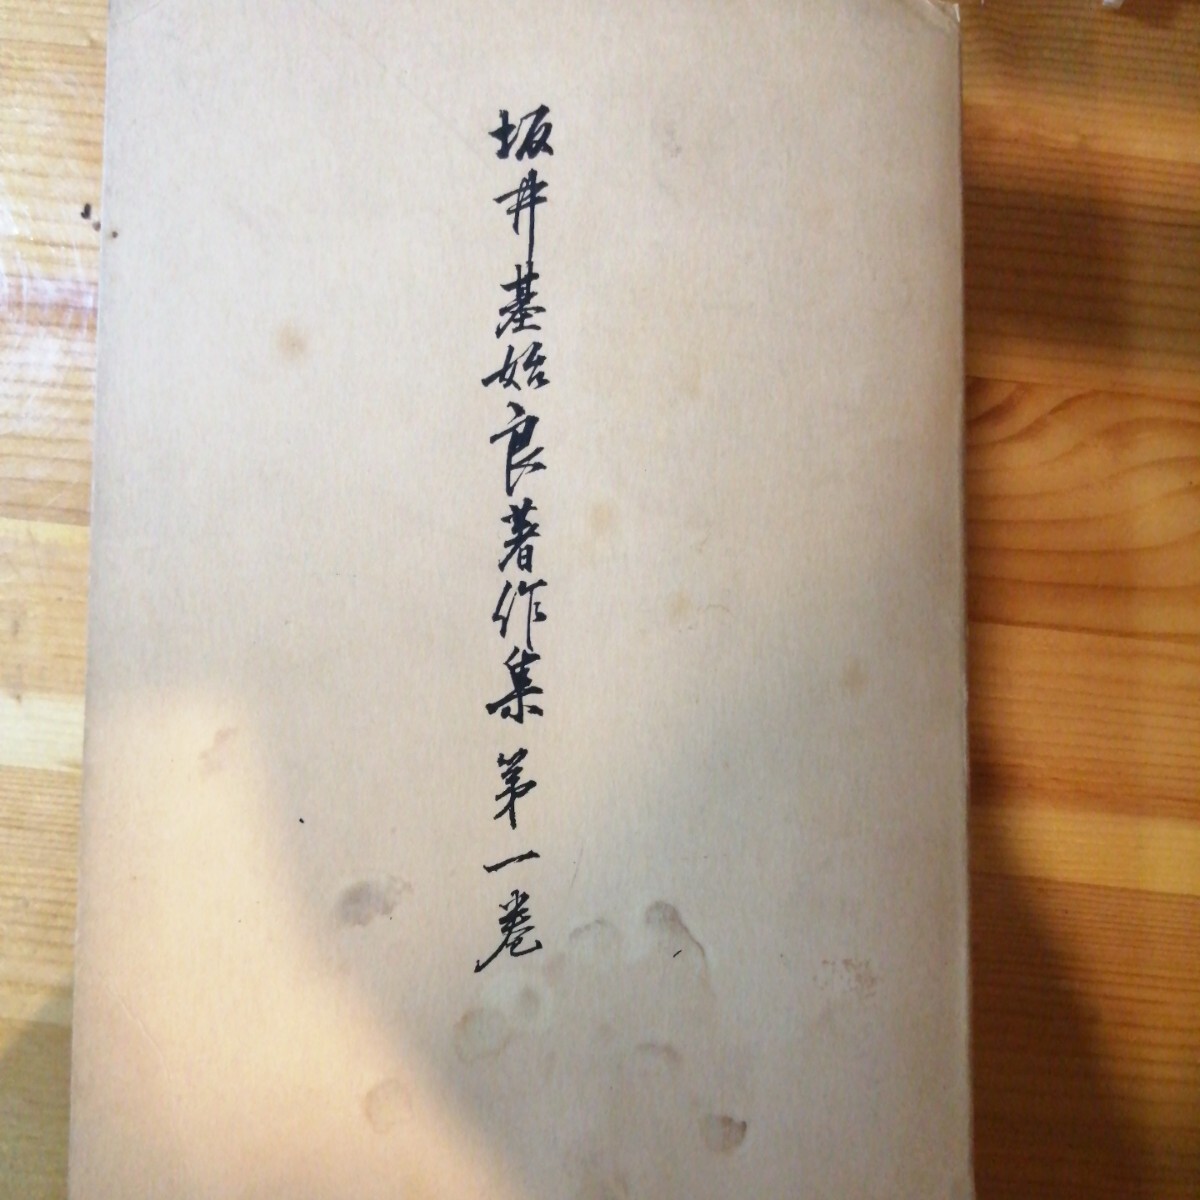 坂井基始良著作集 第一巻